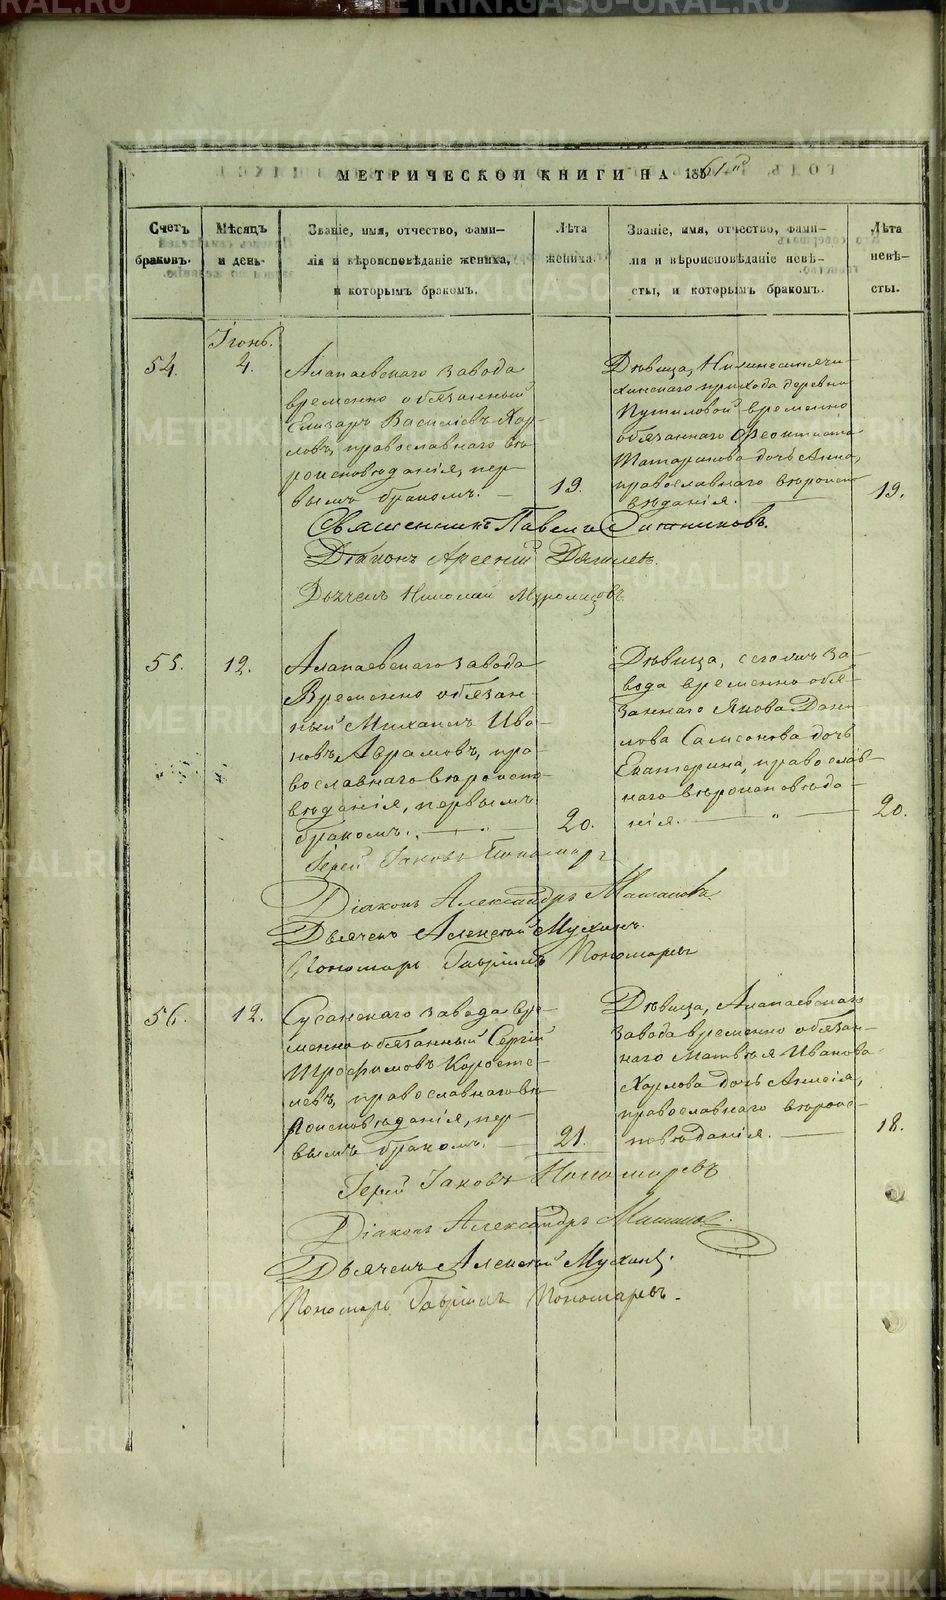 METRIKI.GASO-URAL.RU
МЕТРИЧЕСКОЙ КНИГИ НА 1861й
Счетъ браковъ.
Мѣсяцъ и день.
Званіе, имя, отчество, фами-
лія и вѣроисповѣданіе жениха,
и которымъ бракомъ.
Лѣта жениха.
Званіе, имя, отчество, фами-
лія и вѣроисповѣданіе невѣ-
сты, и которымъ бракомъ.
Лѣта невѣ-
сты.
Іюнь.
54.
4.
Алапаевскаго завода
временно обязанный
Елизаръ Василіевъ Хар-
ловъ, православнаго вѣ
роисповѣданія, пер-
вымъ бракомъ. —
19.
Дѣвица, Нижнесинячи-
хинскаго прихода деревни
Путиловой временно
обязаннаго Феоктиста
Татаринова дочь Анна,
православнаго вѣроиспо
вѣданія. —
19.
Священникъ Павелъ Ситниковъ.
Діаконъ Арсеній Дягилевъ.
Дьячекъ Николай
55.
12.
Алапаевскаго завода
Временно обязан-
ный Михаилъ Ива-
новъ Аврамовъ, пра-
вославнаго вѣроиспо-
вѣданія, первымъ
бракомъ. — „ —
20.
Дѣвица, сегожъ за-
вода временно обя-
заннаго Якова Дани
лова Самсонова дочь
Екатерина, православ-
наго вѣроисповѣда-
нія. — „ —
20.
Іерей Іаковъ Пономар
Діаконъ Александръ
Дьячекъ Алексѣй Мухинъ.
Пономарь Гавріилъ Пономаревъ
56.
12.
Сусанскаго завода вре-
менно обязанный Сергій
Трофимовъ Коросте-
левъ, православнаго вѣ-
роисповѣданія, пер-
вымъ бракомъ. —
21.
Дѣвица, Алапаевскаго
завода временно обязан-
наго Матвѣя Иванова
Харлова дочь Анисія,
православнаго вѣроис-
повѣданія. —
18.
Іерей Іаковъ Пономаревъ
Діаконъ Александръ
Дьячекъ Алексѣй Мухинъ.
Пономарь Гавріилъ Пономаревъ.